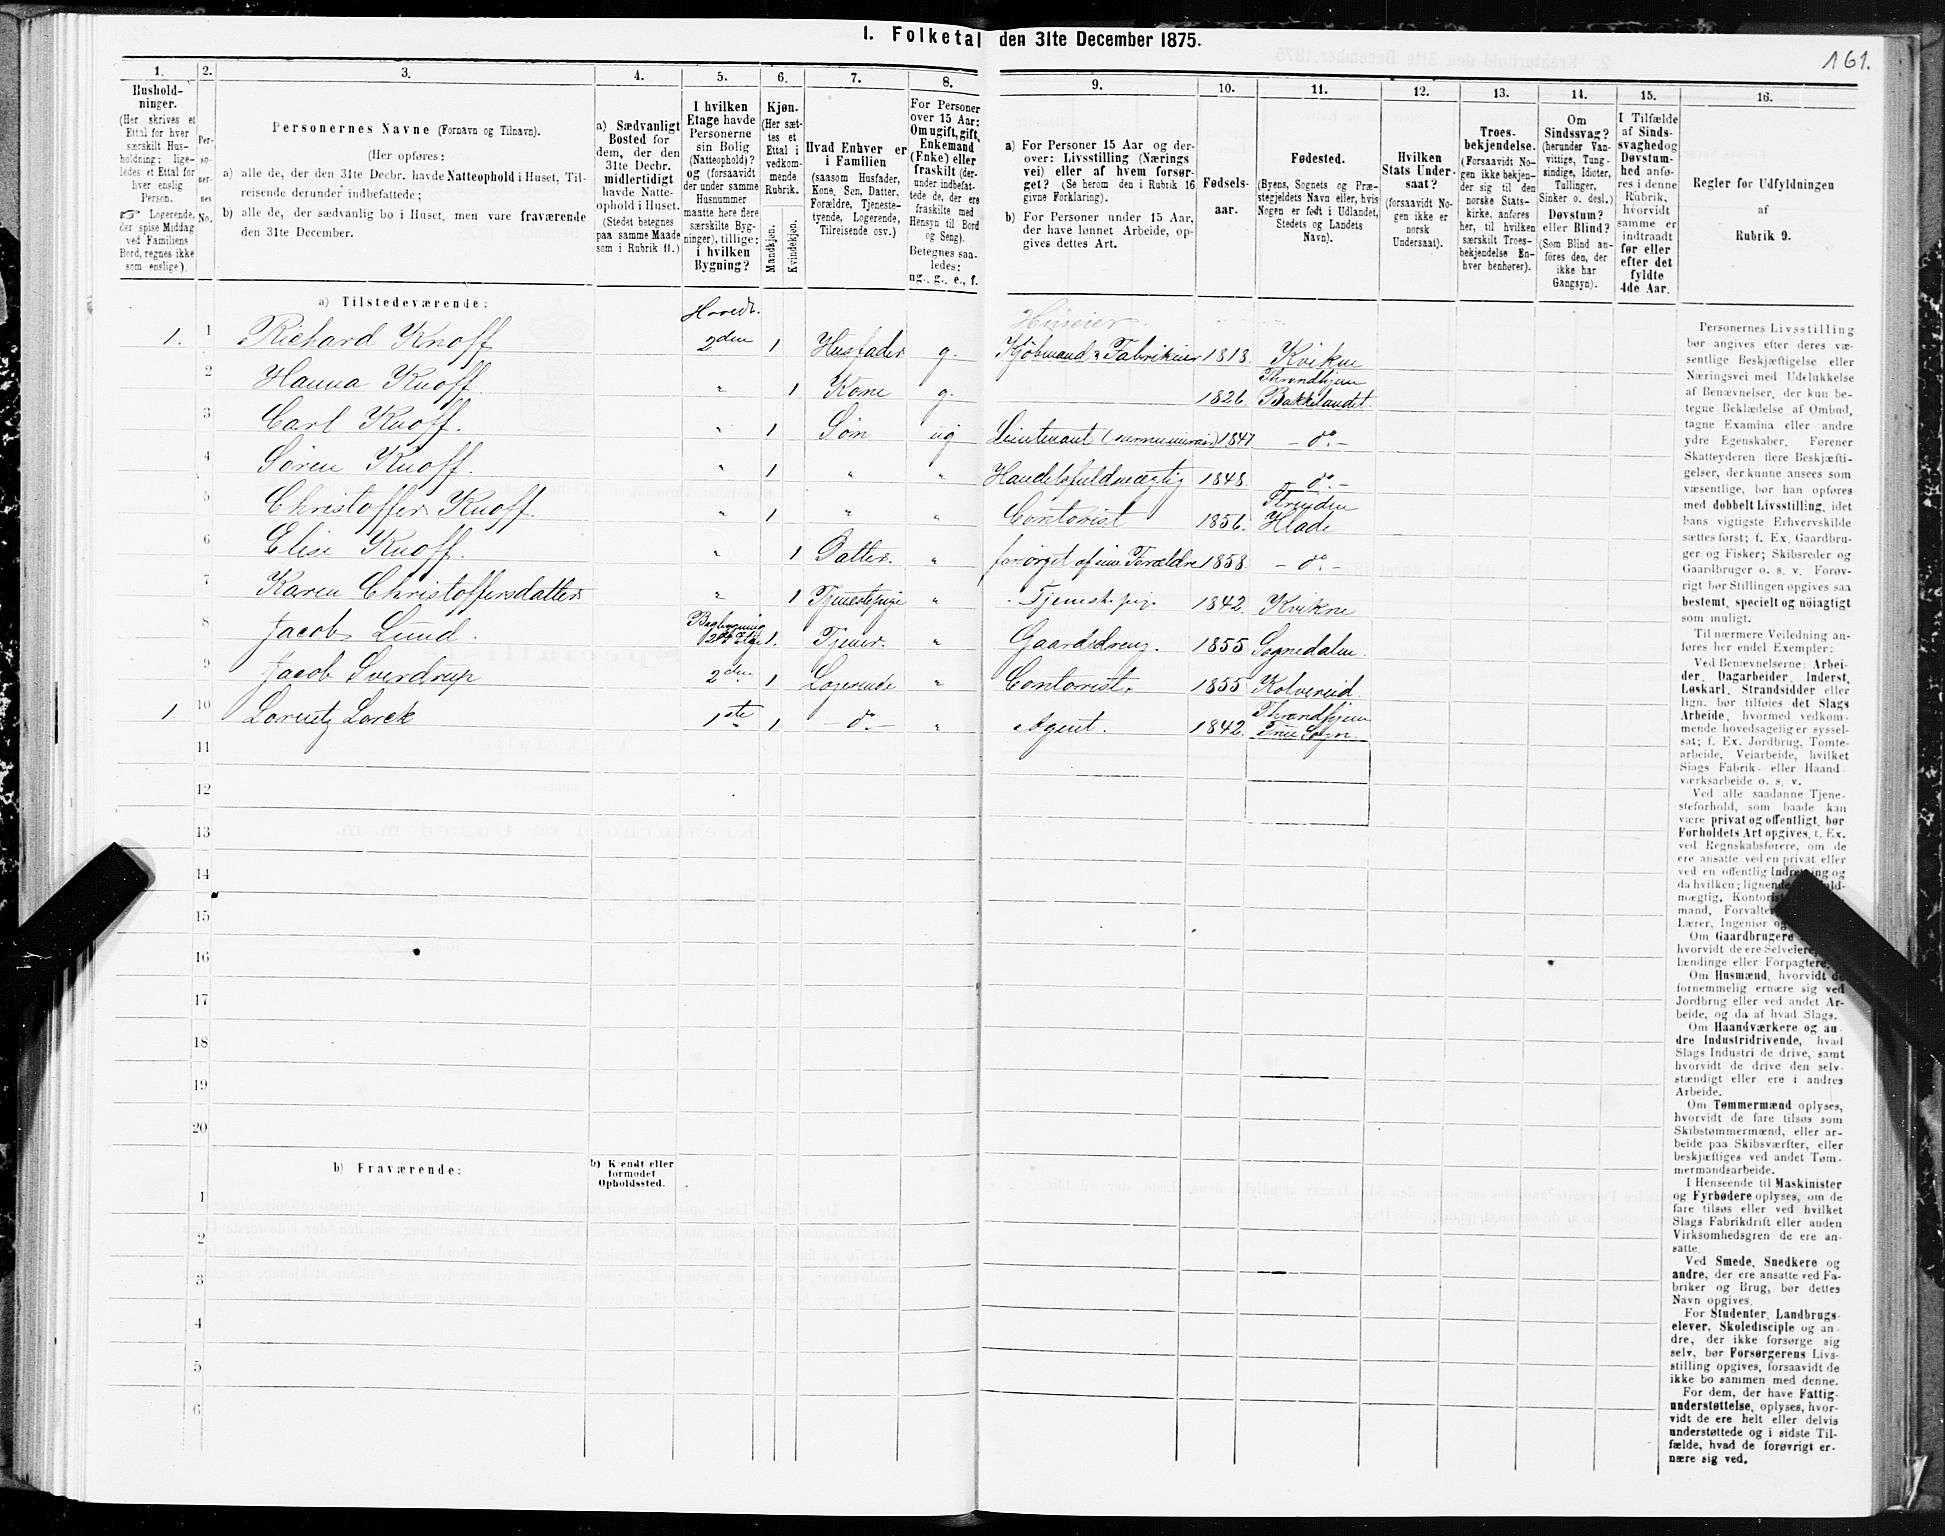 1. Folketal den 31te December 1875.
161.
1.
2.
3.
4.
5.
6.
7.
8.
9.
10.
11.
12.
13.
14.
15.
16.
Hushold-
ninger.
(Her skrives et
Ettal for hver
særskilt Hus-
holdning; lige-
ledes et Ettal for
hver enslig
Person.
☞ Logerende,
der spise Middag
ved Familiens
Bord, regnes ikke
som enslige).
Per-
so-
ner-
nes
No.
Personernes Navne (Fornavn og Tilnavn).
(Her opføres:
a) alle de, der den 31te Decbr. havde Natteophold i Huset, Til-
reisende derunder indbefattede;
b) alle de, der sædvanlig bo i Huset, men vare fraværende
den 31te December.
a) Sædvanligt
Bosted for
dem, der den
31te Decbr.
midlertidigt
havde Natte-
ophold i Huset.
(Stedet betegnes
paa samme Maade
som i Rubrik 11.)
I hvilken
Etage havde
Personerne
sin Bolig
(Natteophold)?
og (forsaavidt
der under samme
Husnummer
maatte høre flere
særskilte Byg-
ninger), tillige:
i hvilken
Bygning?
Kjøn.
(Her sæt-
tes et
Ettal i
vedkom-
mende
Rubrik.
Mandkjøn.
Kvindekjøn.
Hvad Enhver er
i Familien
(saasom Husfader,
Kone, Søn, Datter,
Forældre, Tjeneste-
tyende, Logerende,
Tilreisende osv.)
For Personer
over 15 Aar:
Om ugift, gift,
Enkemand
(Enke) eller
fraskilt (der-
under indbefat-
tede de, der ere
fraskilte med
Hensyn til Bord
og Seng).
Betegnes saa-
ledes:
ug., g., e., f.
a) For Personer 15 Aar og der-
over: Livsstilling (Nærings
vei) eller af hvem forsør-
get? (Se herom den i Rubrik 16
givne Forklaring).
b) For Personer under 15 Aar,
der have lønnet Arbeide, op-
gives dettes Art.
Fødsels-
aar.
Fødested.
(Byens, Sognets og Præ-
stegjeldets Navn eller, hvis
Nogen er født i Udlandet,
Stedets og Landets
Navn).
Hvilken
Stats Under-
saat?
(forsaavidt No-
gen ikke er
norsk
Undersaat).
Troes-
bekjendelse.
(Forsaavidt No-
gen ikke bekjen-
der sig til den
norske Stats-
kirke, anføres
her, til hvilken
særskilt Troes-
bekjendelse En-
hver henhører).
Om
Sindssvag?
(herunder Van-
vittige, Tung-
sindige, Idioter,
Tullinger,
Sinker o. desl.)
Døvstum?
eller Blind?
(Som Blind an-
føres den, der
ikke har
Gangsyn).
I Tilfælde
af Sinds-
svaghed og
Døvstum-
hed anfø-
res i denne
Rubrik,
hvorvidt
samme er
indtraadt
før eller
efter det
fyldte
4de Aar.
Regler for Udfyldningen
af
Rubrik 9.
a) Tilstedeværende:
Hoved.
Huseier.
1. 1 Richard Knoff 2den 1 Husfader g. Kjøbmand & Fabrikeier 1818. Kvikne
2 Hanna Knoff. „ 1 Kone g. 1826. Throndhjem Bakkelandet.
3 Carl Knoff. „ 1 Søn ug Lieutenant 1847 – do. –
4 Søren Knoff. „ 1 „ „ Handelsfuldmægtig 1848. – do. –
5 Christoffer Knoff. „ 1 „ „ Contorist 1856. Strinden Hlade
6 Elise Knoff. „ 1 Datter. „ forsørget af sine Forældre 1858. – do. –
7 Karen Christoffersdatter „ 1 Tjenestepige „ Tjenestepig. 1842. Kvikne
8 Jacob Lund. Bagbygning 2den Etage 1. Tjener. „ Gaardsdreng. 1855 Sognedalen.
9 Jacob Sverdrup 2den 1 Logerende „ Contorist. 1855 Kolvereid.
1. 10 Lorentz Lorck 1ste 1 – do. – „ Agent. 1842. Throndhjem Frue Sogn.
11
12
13
14
15
16
17
18
19
20
b) Fraværende:
b) Kjendt eller
formodet
Opholdssted.
1
2
3
4
5
6
Personernes Livsstilling
bør angives efter deres væ-
sentlige Beskjæftigelse eller
Næringsvei med Udelukkelse
af Benævnelser, der kun be-
tegne Beklædelse af Ombud,
tagne Examina eller andre
ydre Egenskaber. Forener
Skatteyderen flere Beskjæfti-
gelser, der kunne ansees som
væsentlige, bør han opføres
med dobbelt Livsstilling, idet
hans vigtigste Erhvervskilde
sættes først; f. Ex. Gaardbru-
ger og Fisker; Skibsreder og
Gaardbruger o. s. v. Forøv-
rigt bør Stillingen opgives saa
bestemt, specielt og nøiagtigt
som muligt.
Til nærmere Veiledning an-
føres her endel Exempler:
Ved Benævnelserne: Arbei-
der, Dagarbeider, Inderst,
Løskarl, Strandsidder eller
lign. bør tilføies det Slags
Arbeide, hvormed vedkom-
mende hovedsagelig er syssel-
sat; f. Ex. Jordbrug, Tomte-
arbeide, Veiarbeide, hvilket
Slags Fabrik- eller Haand-
værksarbeide o. s. v.
Ved alle saadanne Tjene-
steforhold, som baade kan
være privat og offentligt, bør
Forholdets Art opgives, f. Ex.
ved Regnskabsførere, om de
ere ansatte ved en privat eller
ved en offentlig Indretning og
da hvilken; lignende
mægtig, Kontorist
mand, Forvalter
Lærer, Ingeniør og
Om Gaardbrugere
hvorvidt de ere Selveiere,
lændinge eller Forpagtere.
Om Husmænd, hvorvidt de
fornemmelig ernære sig ved
Jordbrug eller ved andet Ar-
beide, og da af hvad Slags.
Om Haandværkere og an-
dre Industridrivende, hvad
Slags Industri de drive, samt
hvorvidt de drive den selv-
stændigt eller ere i andres
Arbeide.
Om Tømmermænd oplyses,
hvorvidt de fare tilsøs som
Skibstømmermænd, eller ar-
beide paa Skibsværfter, eller
beskjæftiges ved andet Tøm-
mermandsarbeide.
I Henseende til Maskinister
og Fyrbødere oplyses, om de
fare tilsøs eller ved hvilket
Slags Fabrikdrift eller anden
Virksomhedsgren de ere an-
satte.
Ved Smede, Snedkere og
andre, der ere ansatte ved Fa-
briker og Brug, bør dettes
Navn opgives.
For Studenter, Landbrugs-
elever, Skoledisciple og an-
dre, der ikke forsørge sig
selv, bør Forsørgerens Livs-
stilling opgives, forsaavidt de
ikke bo sammen med denne.
For dem, der have Fattig-
understøttelse, oplyses, hvor-
vidt de ere helt eller delvis
understøttede og i sidste Til-
fælde, hvad de forøvrigt er-
nære sig ved.